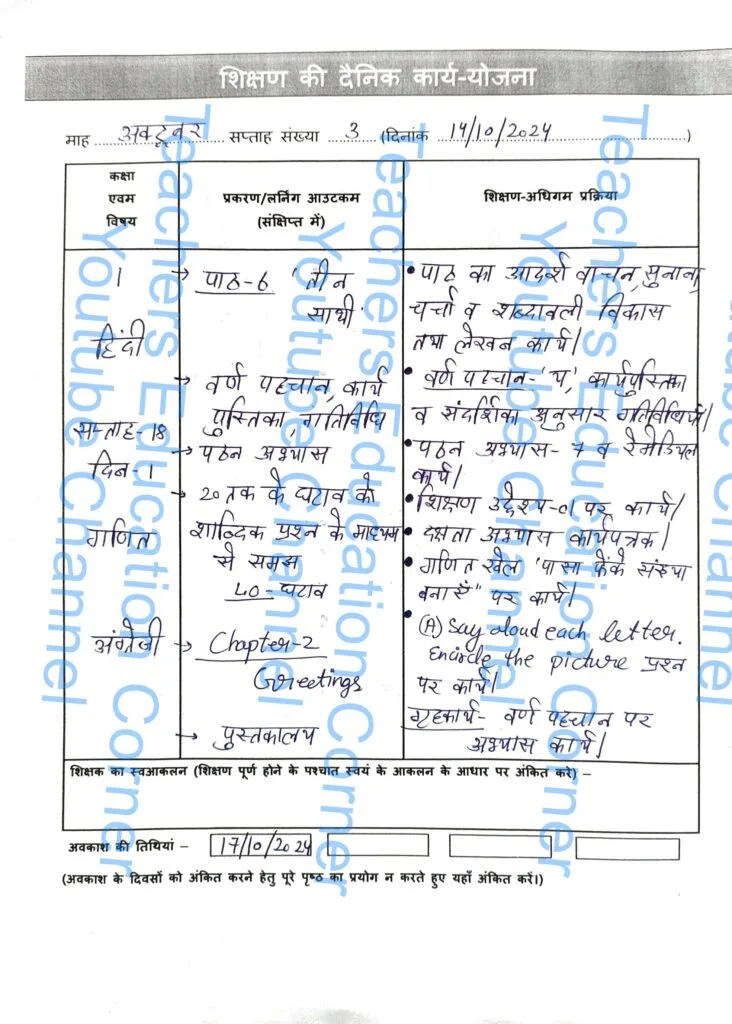 शिक्षण की दैनिक कार्य-योजना
माह अक्टूबर सप्ताह संख्या 3 (दिनांक 14/10/2024)
कक्षा
एवम
विषय
प्रकरण/लर्निंग आउटकम
(संक्षिप्त में)
शिक्षण-अधिगम प्रक्रिया
1
हिंदी
सप्ताह-18
दिन-1
गणित
अंग्रेजी
→ पाठ-6 'तीन
साथी'
→ वर्ण पहचान, कार्य
पुस्तिका, गतिविधि
→ पठन अभ्यास
→ 20 तक के घटाव को
शाब्दिक प्रश्न के माध्यम
से समझ
LO-घटाव
→ Chapter-2
Greetings
→ पुस्तकालय
• पाठ का आदर्श वाचन, सुनाना,
चर्चा व शब्दावली विकास
तथा लेखन कार्य।
• वर्ण पहचान-'च', कार्यपुस्तिका
व संदर्शिका अनुसार गतिविधियाँ।
• पठन अभ्यास- 7 व रेमेडियल
कार्य।
• शिक्षण उद्देश्य-01 पर कार्य।
• दक्षता अभ्यास कार्यपत्रक।
• गणित खेल 'पासा फेंके संख्या
बनाएँ" पर कार्य।
• (A) Say aloud each letter.
Encircle the picture प्रश्न
पर कार्य।
गृहकार्य- वर्ण पहचान पर
अभ्यास कार्य।
शिक्षक का स्वआकलन (शिक्षण पूर्ण होने के पश्चात स्वयं के आकलन के आधार पर अंकित करे) –
अवकाश की तिथियां – 17/10/2024
(अवकाश के दिवसों को अंकित करने हेतु पूरे पृष्ठ का प्रयोग न करते हुए यहाँ अंकित करें।)
Teachers Education Corner
Youtube Channel
Teachers Education Corner
Youtube Channel
Teachers Education Corner
Youtube Channel